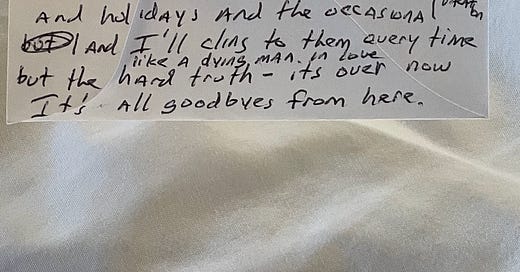 And holidays And the occasional
but And I'll cling to them every time
like A dying man. in love
but the hard truth - its over now
It's All goodbyes from here.